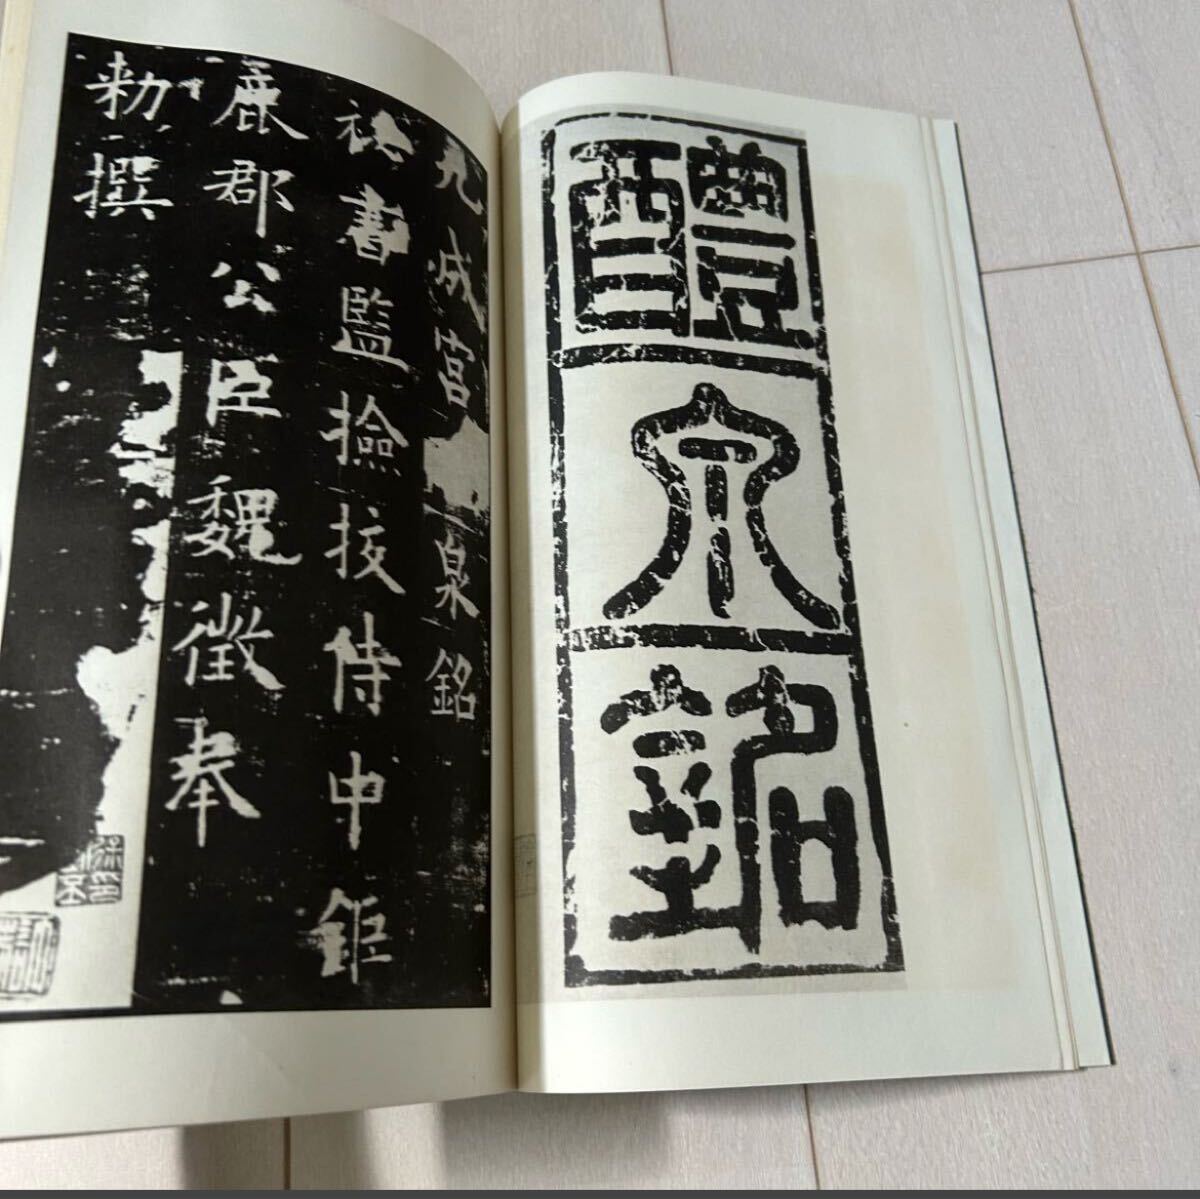 醴泉銘
九成宮泉銘
祕書監撿挍侍中鉅
鹿郡公臣魏徵奉
勅撰